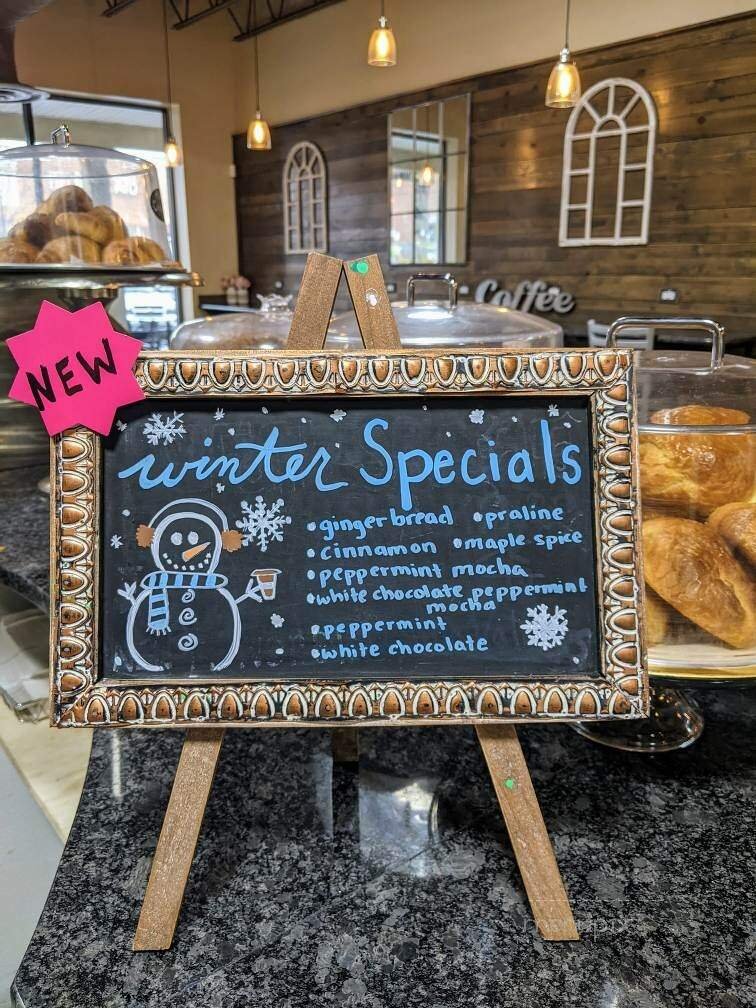 Coffee
NEW
winter Specials
•gingerbread •praline
•cinnamon •maple spice
•peppermint mocha
•white chocolate peppermint
mocha
•peppermint
•white chocolate